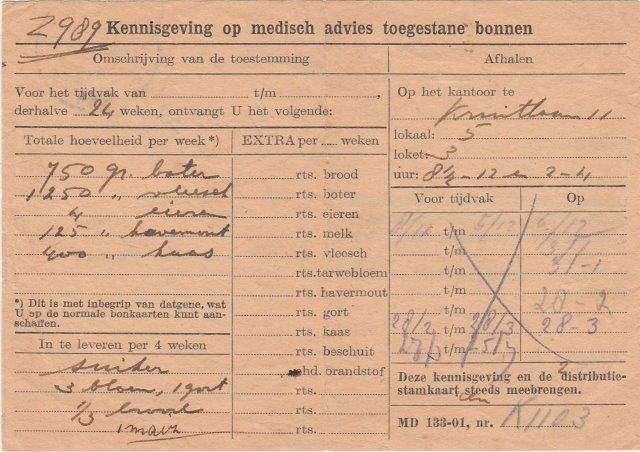 2989 Kennisgeving op medisch advies toegestane bonnen
Omschrijving van de toestemming
Voor het tijdvak van t/m ,
derhalve 24 weken, ontvangt U het volgende:
Totale hoeveelheid per week*)
750 gr. boter
1250 " vleesch
4 eieren
125 " havermout
400 " kaas
*) Dit is met inbegrip van datgene, wat
U op de normale bonkaarten kunt aan-
schaffen.
In te leveren per 4 weken
suiker
3 bloem, 1 gort
1/3 brood
EXTRA per weken
rts. brood
rts. boter
rts. eieren
rts. melk
rts. vleesch
rts. tarwebloem
rts. havermout
rts. gort
rts. kaas
rts. beschuit
ehd. brandstof
rts.
rts.
rts.
Afhalen
Op het kantoor te
11
lokaal: 5
loket: 3
uur: 8½ - 12 en 2-4
Voor tijdvak Op
t/m
t/m
t/m 31-1
t/m 28-2
28/2 t/m 28/3 28-3
t/m
Deze kennisgeving en de distributie-
stamkaart steeds meebrengen.
MD 133-01, nr. K1103